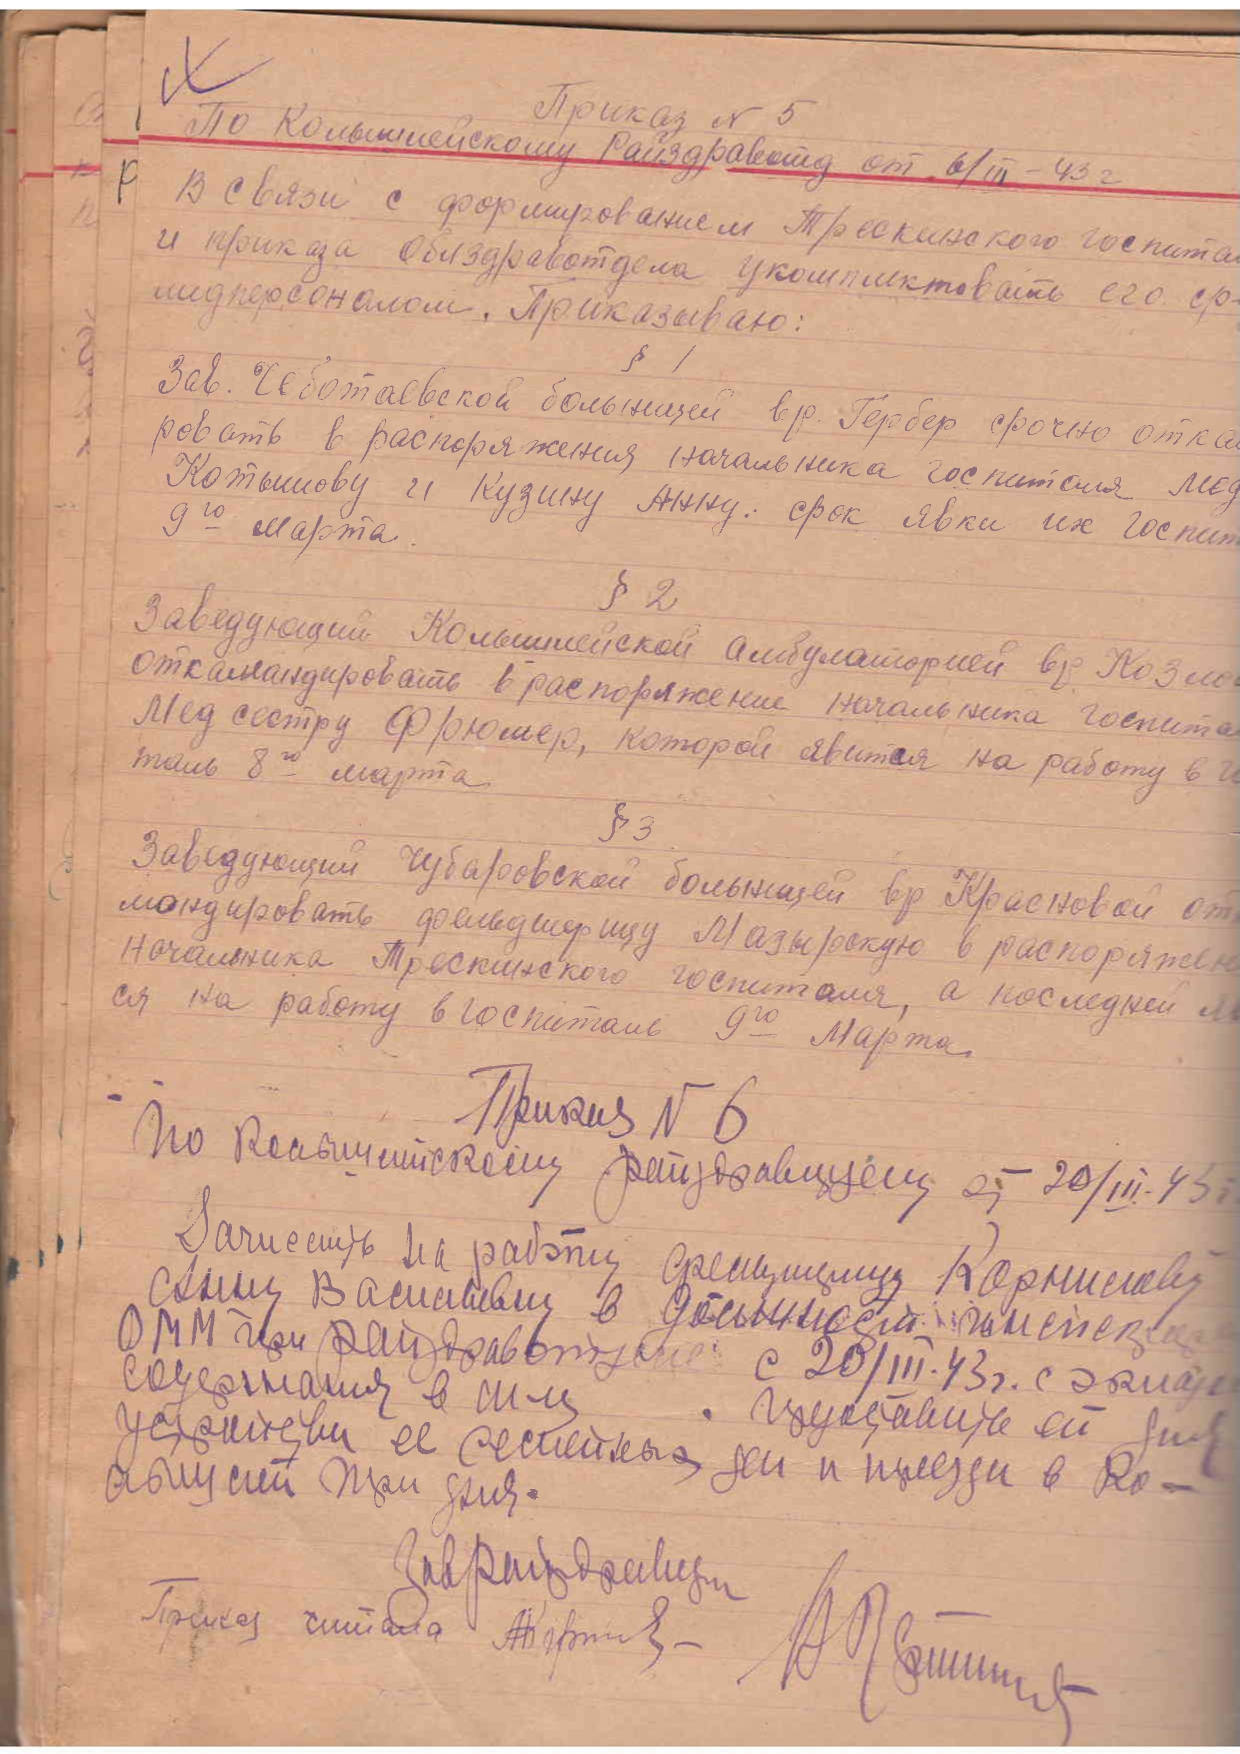 Приказ N 5
По Колышлейскому Райздравотд от 6/III-43 г
В связи с формированием Трескинского госпитал
и приказа Облздравотдела укомплектовать его ср-
медперсоналом. Приказываю:
§ 1
Зав. Чеботаевской больницей вр. Гербер срочно отка
ровать в распоряжения начальника госпиталя мед
Котышову и Кузину Анну. срок явки их госпит
9го марта.
§ 2
Заведующий Колышлейской амбулаторией вр. Козло
откамандировать в распоряжение начальника госпита
Мед сестру Фрюмер, которой явится на работу в г
таль 8го марта.
§ 3
Заведующий Чубаровской больницей вр Красновой отк
мандировать фельдшерицу Мазырскую в распоряжен
начальника Трескинского госпиталя, а последней
ся на работу в госпиталь 9го Марта.
Приказ N 6
По Колышлейскому райздравотделу от 20/III-43 г
Зачислить на работу Корнилову
Анну Васильевну в должность
ОММ при райздравотделе с 20/III-43 г. с окладом
содержания в . предоставить ей для
устройства ее семейных дел и приезда в Ко-
лышлей три дня.
Заврайздравом
Приказ читала